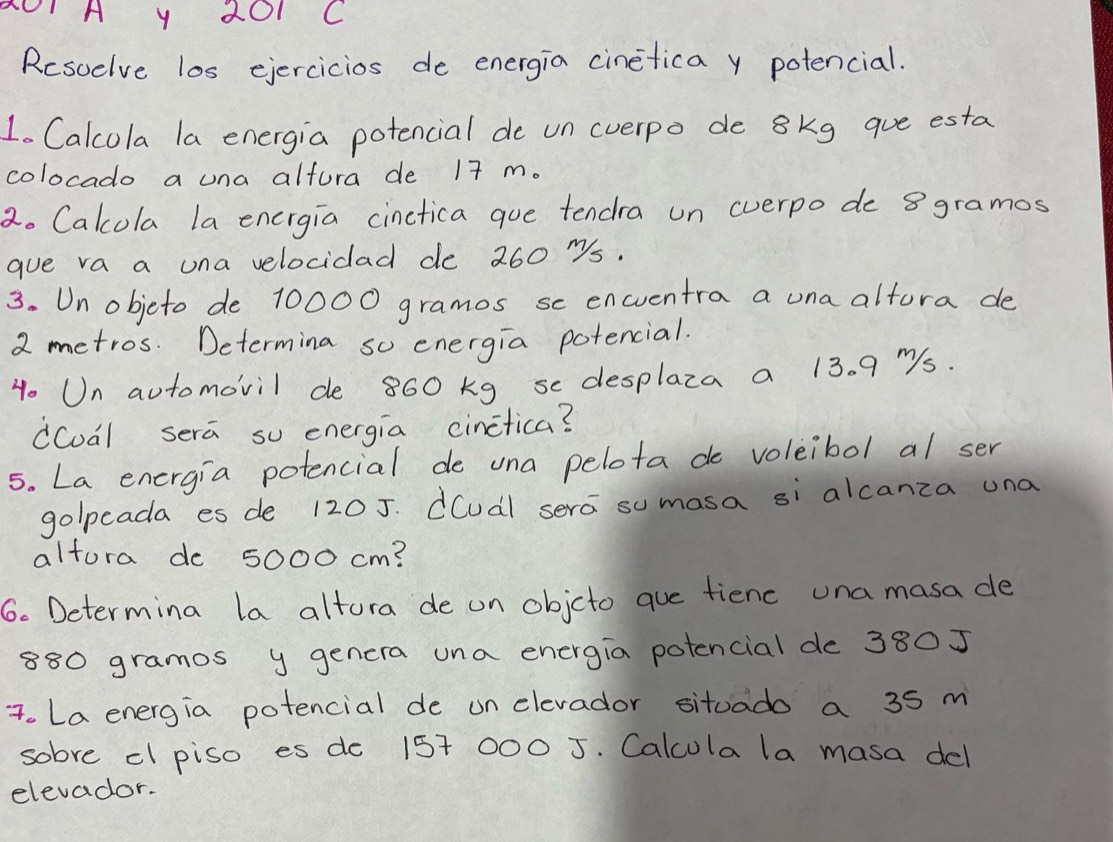 201 A y 201 C
Resuelve los ejercicios de energía cinética y potencial.
1. Calcula la energía potencial de un cuerpo de 8kg que esta
colocado a una altura de 17 m.
2. Calcula la energía cinetica que tendra un cuerpo de 8 gramos
que va a una velocidad de 260 m/s.
3. Un objeto de 10000 gramos se encuentra a una altura de
2 metros. Determina su energía potencial.
4. Un automóvil de 860 kg se desplaza a 13.9 m/s.
¿Cuál será su energía cinética?
5. La energía potencial de una pelota de voleibol al ser
golpeada es de 120 J. ¿Cuál será su masa si alcanza una
altura de 5000 cm?
6. Determina la altura de un objeto que tiene una masa de
880 gramos y genera una energía potencial de 380 J
7. La energía potencial de un elevador situado a 35 m
sobre el piso es de 157 000 J. Calcula la masa del
elevador.